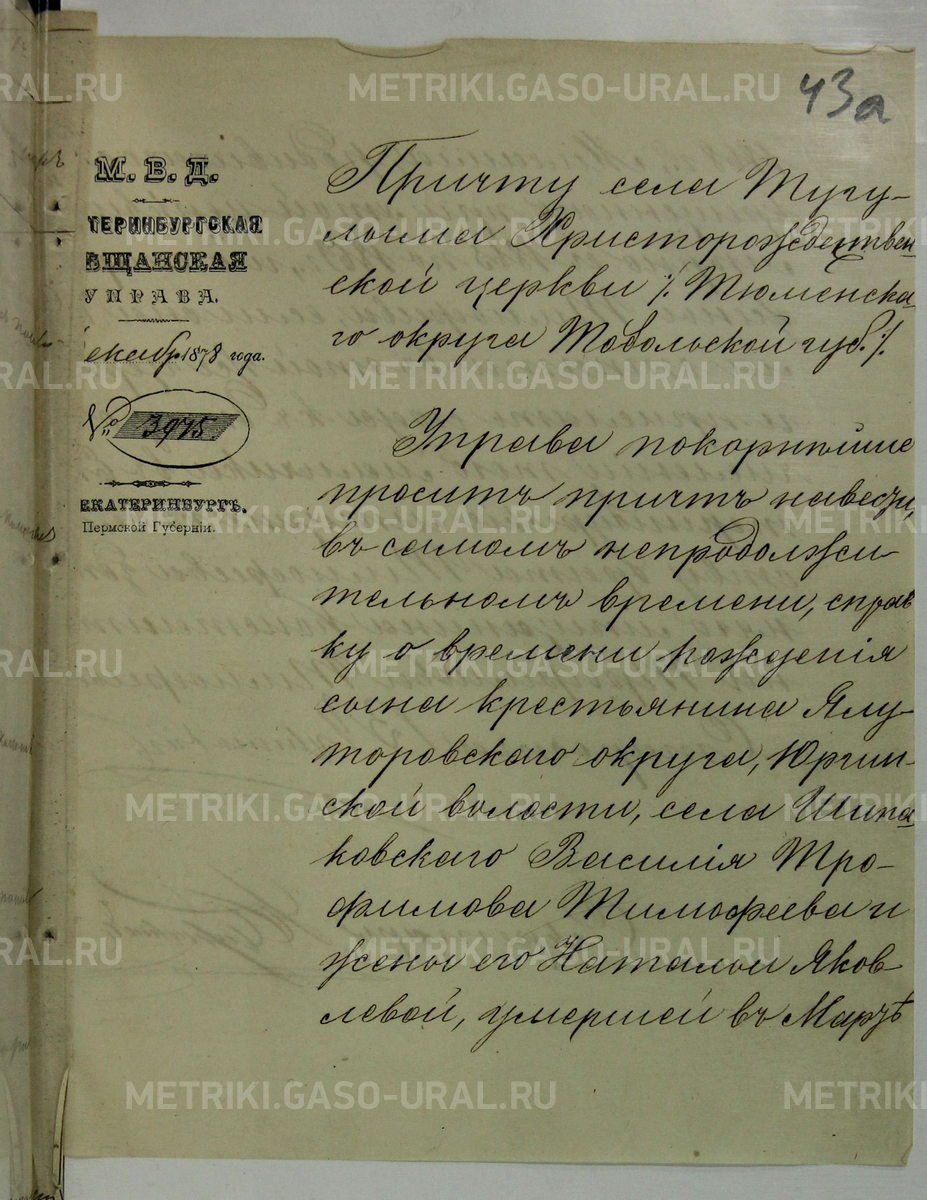 43а
М. В. Д.
ТЕРИНБУРГСКАЯ
ѢЩАНСКАЯ
УПРАВА.
екабр. 1878 года.
№ 3975
ЕКАТЕРИНБУРГЪ.
Пермской Губерніи.
Причту села Тугу-
лыма Христорождествен
ской церкви /. Тюменска-
го округа Тобольской губ. /.
Управа покорнѣйше
проситъ причтъ навести,
въ самомъ непродолжи-
тельномъ времени, справ
ку о времени рожденія
сына крестьянина Ялу-
торовскаго округа, Юргин-
ской волости, села Шипа
ковскаго Василія Тро-
фимова Тимофеева и
жены его Натальи Яков-
левой, умершей въ Мартѣ
METRIKI.GASO-URAL.RU